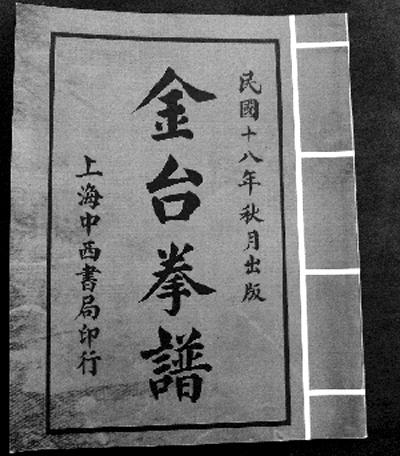 民國十八年秋月出版
金台拳譜
上海中西書局印行